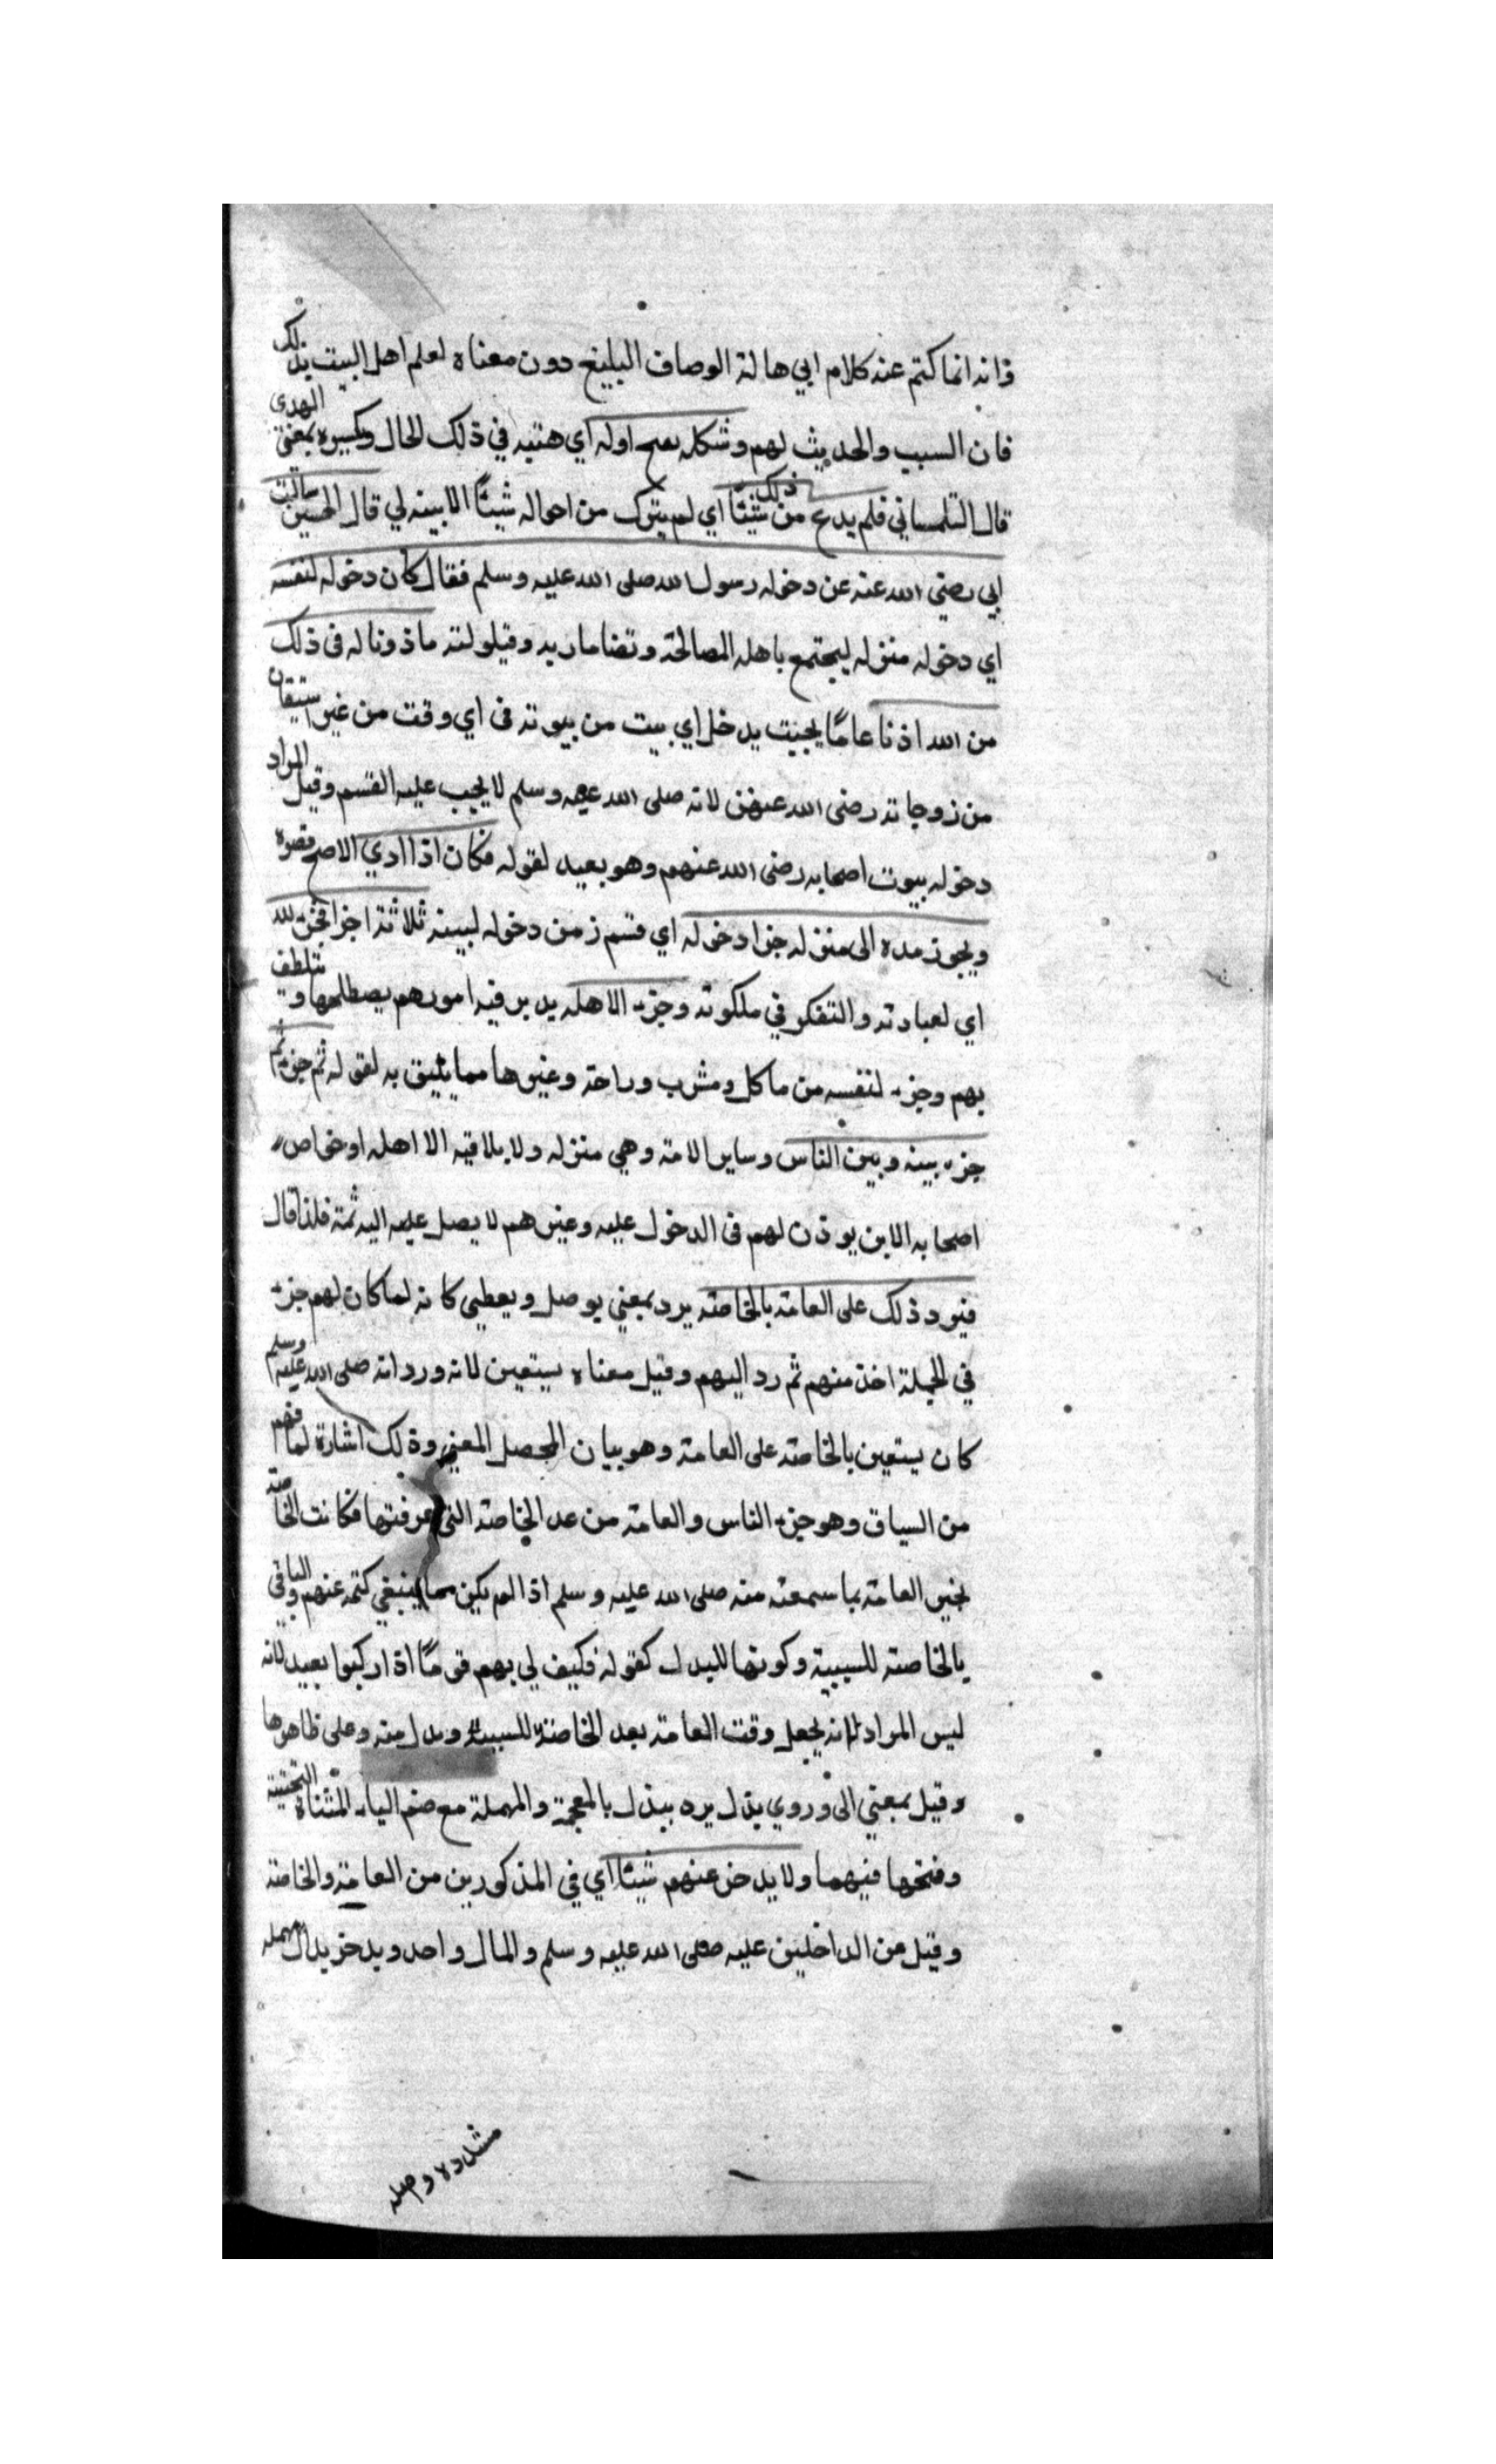 فانه انما كتم عنه كلام ابي هالة الوصاف البليغ دون معناه لعلم اهل البيت بذلك
فان السبب والحديث لهم وشكله بفتح اوله اي هيئته في ذلك الحال وبكسره بمعنى الهدى
قال التلمساني فلم يدع من ذلك شيئًا اي لم يترك من احواله شيئًا الا بينه لي قال الحسين سالت
ابي رضي الله عنه عن دخوله رسول الله صلى الله عليه وسلم فقال كان دخوله لنفسه
اي دخوله منزله ليجتمع باهله المصالحة وقضا ماربه وقيلولته ماذونا له في ذلك
من الله اذنا عامًا بحيث يدخل اي بيت من بيوته في اي وقت من غير استيقان
من زوجاته رضي الله عنهن لانه صلى الله عليه وسلم لا يجب عليه القسم وقيل المراد
دخوله بيوت اصحابه رضي الله عنهم وهو بعيد لقوله فكان اذا ادي الاصح قصره
ويجوز مده الى منزله جزا دخوله اي قسم زمن دخوله لبيته ثلاثة اجزا فجزء لله
اي لعبادته والتفكر في ملكوته وجزء الاهله يدبر فيه امورهم يصطلحها ويتلطف
بهم وجزء لنفسه من ماكل ومشرب وراحة وغيرها مما يليق به لقوله ثم جزء ثم
جزء بينه وبين الناس وساير الامة وهي منزله ولا يلاقيه الا اهله او خواص
اصحابه الاين يوذن لهم في الدخول عليه وغيرهم لا يصل عليه اليه ثمة فلذا قال
فيرد ذلك على العامة بالخاصة يرد بمعني يوصل ويعطي كانه لما كان لهم جزء
في الجملة اخذ منهم ثم رد اليهم وقيل معناه يستعين لانه ورد انه صلى الله عليه وسلم
كان يستعين بالخاصة على العامة وهو بيان المحصل المعني وذلك اشارة لما فهم
من السياق وهو جزء الناس والعامة من عدا الخاصة التي عرفتها فكانت الخاصة
تخبر العامة بما سمعته منه صلى الله عليه وسلم اذا لم يكن مما ينبغي كتمه عنهم والباقي
بالخاصة للسببية وكونها للبدل كقوله فكيف لي بهم قومًا اذا ركبوا بعيد لانه
ليس المراد لانه يجعل وقت العامة بعد الخاصة للسببية وبدل منه وعلى ظاهرها
وقيل بمعني الى وروي يذل يره يبذل بالمعجمة والمهملة مع ضم الياء المثناة التحتية
وفتحها فيهما ولا يدخر عنهم شيئًا اي في المذكورين من العامة والخاصة
وقيل عن الداخلين عليه صلى الله عليه وسلم والمال واحد ويدخر بدال مهملة
مشددة وصله